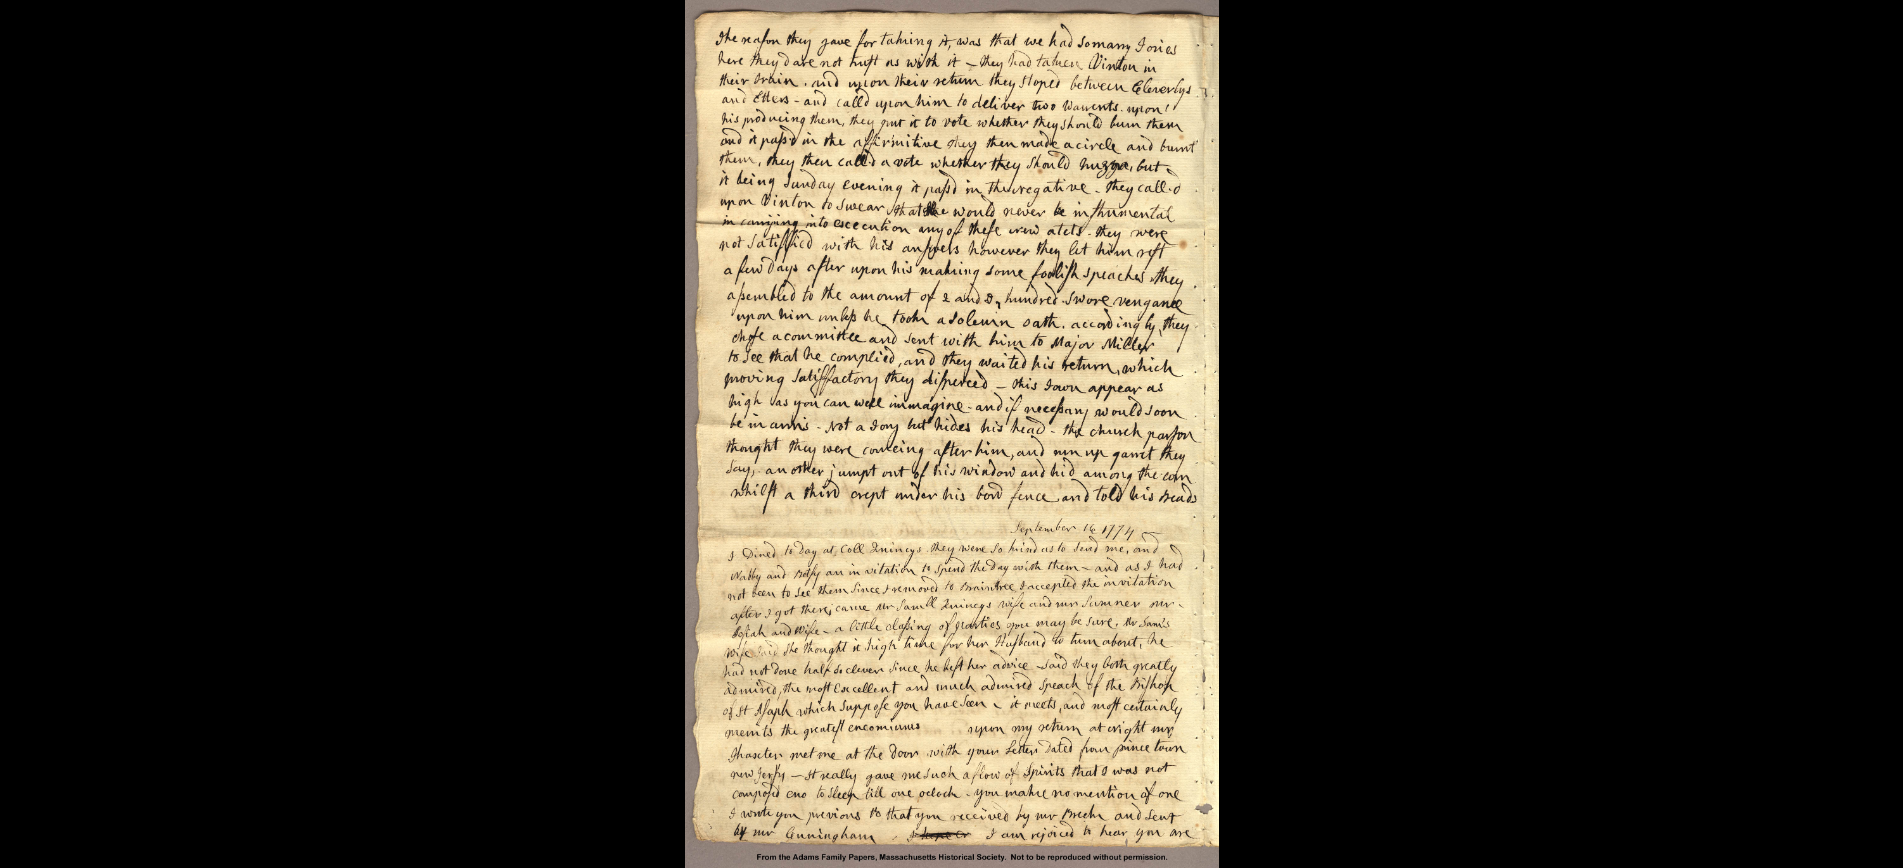 The reason they gave for taking it, was that we had so many Tories
here they dare not trust us with it – they had taken Vinton in
their train. and upon their return they stoped between Cleverlys
and Etters – and calld upon him to deliver two Warrents. upon
his producing them, they put it to vote whether they should burn them
and it pass'd in the affirmitive they then made a circle and burnt
them, they then calld a vote whether they should huzza, but
it being Sunday evening it passd in the negative – they call'd
upon Vinton to swear that he would never be instrumental
in carrying into excecution any of these new atcts. they were
not Satisfied with his answers however they let him rest
a few Days after upon his making some foolish speaches, they
assembled to the amount of 2 and hundred swore vengance
upon him unless he took a solemn oath. accordingly, they
chose a committee and sent with him to Major Miller
to see that he complied, and they waited his return, which
proving Satisfactory they disperced – this Town appear as
high as you can well immagine – and if necessary would soon
be in arms – Not a Tory but hides his head – the church parson
thought they were comeing after him, and run up garret they
say, another jumpt out of his window and hid among the corn
whilst a third crept under his bord fence, and told his Beads
September 16 1774 –
I Dined to Day at Coll Quincys. they were so kind as to send me, and
Nabby and Betsy an invitation to spend the Day with them – and as I had
not been to see them since I removed to Braintree I accepted the invitation
after I got there, came Mr Samll Quincys wife and mr Sumner mr
Josiah and Wife – a little clashing of parties you may be sure. Mr Sam's
wife said she thought it high time for her Husband to turn about, he
had not done half so clever since he left her advice – said they both greatly
admired, the most excellent and much admired speach of the Bishop
of St Asaph which suppose you have seen – it meets, and most certainly
merrits the greatest encomiums upon my return at night mr
Thaxter met me at the Door with your Letter dated from prince town
new jersy – It really gave me such a flow of Spirits that I was not
composed eno to sleep till one oclock – you make no mention of one
I wrote you previous to that you received by mr Breck and sent
by mr Cunningham I am rejoiced to hear you are
From the Adams Family Papers, Massachusetts Historical Society. Not to be reproduced without permission.